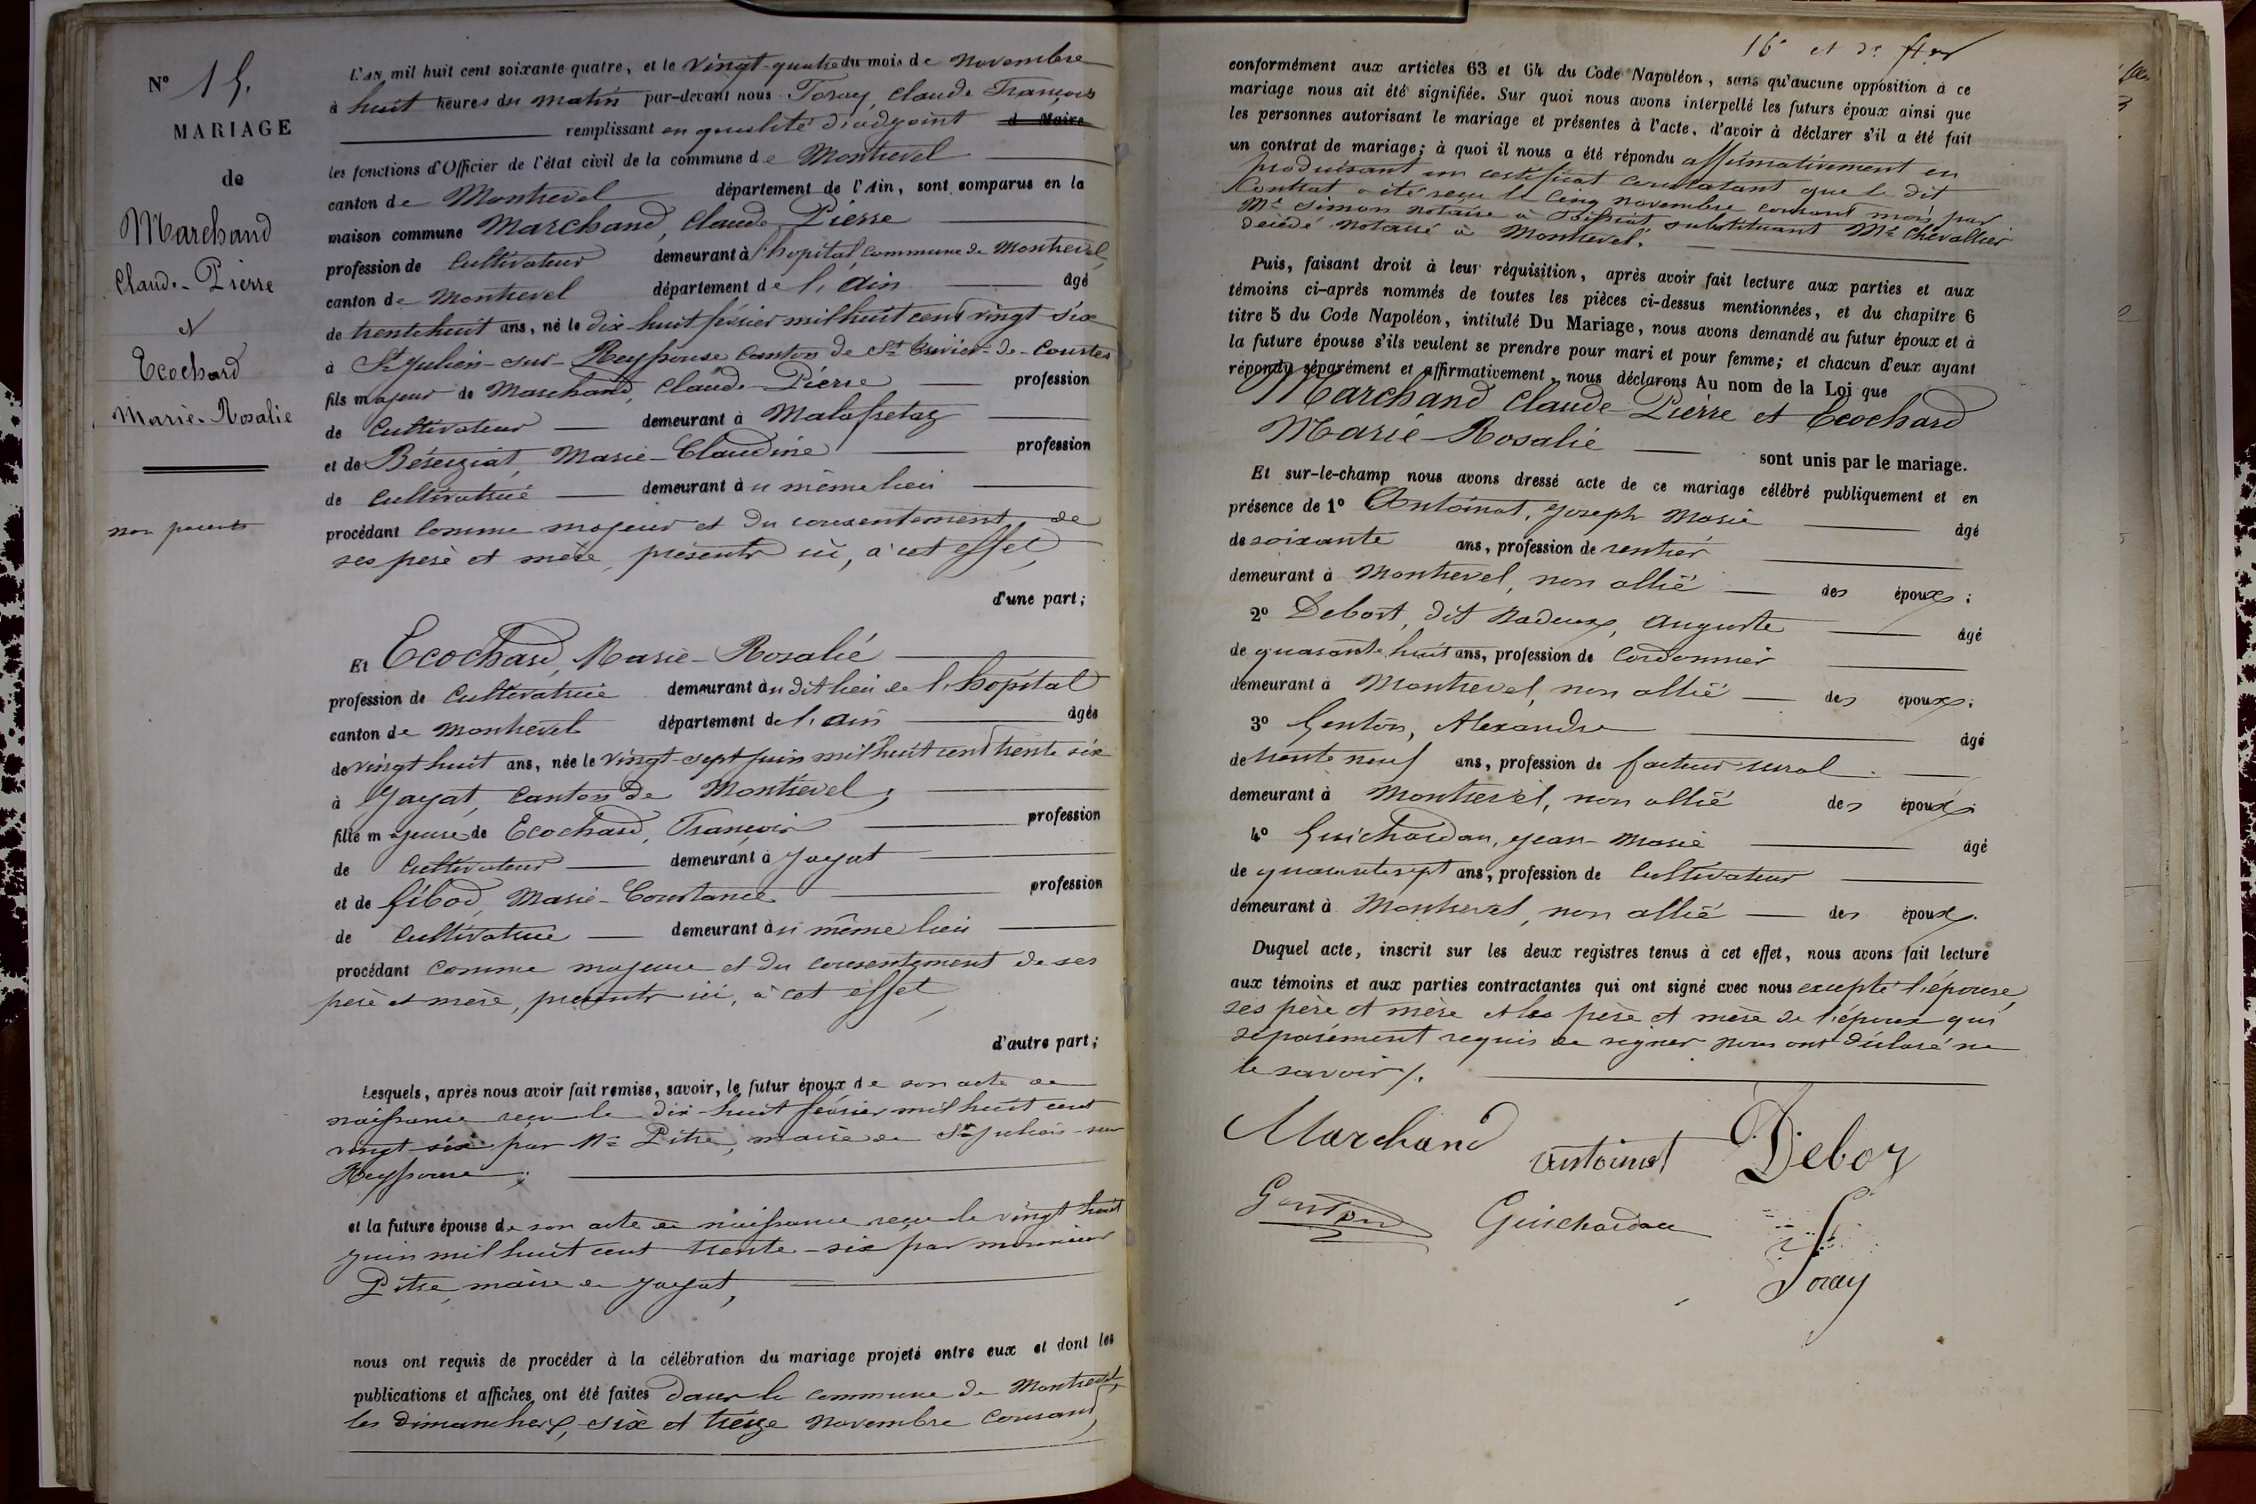 N° 15.
MARIAGE
de
Marchand
Claude-Pierre
et
Ecochard
Marie-Rosalie
non parents
L'AN mil huit cent soixante quatre, et le vingt-quatre du mois de novembre
à huit heures du matin par-devant nous Foray, Claude François
remplissant en qualité d'adjoint d Maire
les fonctions d'Officier de l'état civil de la commune de Montrevel
canton de Montrevel département de l'Ain, sont comparus en la
maison commune Marchand, Claude Pierre
profession de Cultivateur demeurant à l'hopital, commune de Montrevel,
canton de Montrevel département de l'Ain âgé
de trente huit ans, né le dix-huit février mil huit cent vingt-six
à St Julien-sur-Reyssouze canton de St Trivier-de-Courtes
fils majeur de Marchand, Claude-Pierre profession
de Cultivateur demeurant à Malafretaz
et de Béréziat, Marie-Claudine profession
de Cultivatrice demeurant au même lieu
procédant comme majeur et du consentement de
ses père et mère, présents ici, à cet effet,
d'une part;
Et Ecochard, Marie-Rosalie
profession de Cultivatrice demeurant au dit lieu de l'hopital
canton de Montrevel département de l'Ain âgée
de vingt huit ans, née le vingt-sept juin mil huit cent trente six
à Jayat, canton de Montrevel,
fille majeure de Ecochard, François profession
de Cultivateur demeurant à Jayat
et de Gibod, Marie-Constance profession
de Cultivatrice demeurant au même lieu
procédant comme majeure et du consentement de ses
père et mère, présents ici, à cet effet,
d'autre part;
Lesquels, après nous avoir fait remise, savoir, le futur époux de son acte de
naissance reçu le dix-huit février mil huit cent
vingt-six par Mr Pitre, maire de St Julien-sur
Reyssouze;
et la future épouse de son acte de naissance reçu le vingt huit
juin mil huit cent trente-six par monsieur
Pitre, maire de Jayat,
nous ont requis de procéder à la célébration du mariage projeté entre eux et dont les
publications et affiches ont été faites dans la commune de Montrevel,
les dimanches, six et treize novembre courant,
16e et der
conformément aux articles 63 et 64 du Code Napoléon, sans qu'aucune opposition à ce
mariage nous ait été signifiée. Sur quoi nous avons interpellé les futurs époux ainsi que
les personnes autorisant le mariage et présentes à l'acte, d'avoir à déclarer s'il a été fait
un contrat de mariage; à quoi il nous a été répondu affirmativement en
produisant un certificat constatant que le dit
contrat a été reçu le cinq novembre courant mois, par
Me Simon notaire à substituant Me Chevallier
décédé notaire à Montrevel.
Puis, faisant droit à leur réquisition, après avoir fait lecture aux parties et aux
témoins ci-après nommés de toutes les pièces ci-dessus mentionnées, et du chapitre 6
titre 5 du Code Napoléon, intitulé Du Mariage, nous avons demandé au futur époux et à
la future épouse s'ils veulent se prendre pour mari et pour femme; et chacun d'eux ayant
répondu séparément et affirmativement, nous déclarons Au nom de la Loi que
Marchand Claude-Pierre et Ecochard
Marie-Rosalie sont unis par le mariage.
Et sur-le-champ nous avons dressé acte de ce mariage célébré publiquement et en
présence de 1° Antoinat, Joseph Marie âgé
de soixante ans, profession de rentier
demeurant à Montrevel, non allié des époux;
2° Debost, dit Nadeux, Auguste âgé
de quarante huit ans, profession de Cordonnier
demeurant à Montrevel, non allié des époux;
3° Genton, Alexandre âgé
de trente neuf ans, profession de facteur rural
demeurant à Montrevel, non allié des époux;
4° Guichardan, Jean-Marie âgé
de quarante sept ans, profession de Cultivateur
demeurant à Montrevel, non allié des époux.
Duquel acte, inscrit sur les deux registres tenus à cet effet, nous avons fait lecture
aux témoins et aux parties contractantes qui ont signé avec nous excepté l'épouse,
ses père et mère et les père et mère de l'époux qui
séparément requis de signer nous ont déclaré ne
le savoir /.
Marchand Antoinat Deboz
Genton Guichardan
Foray